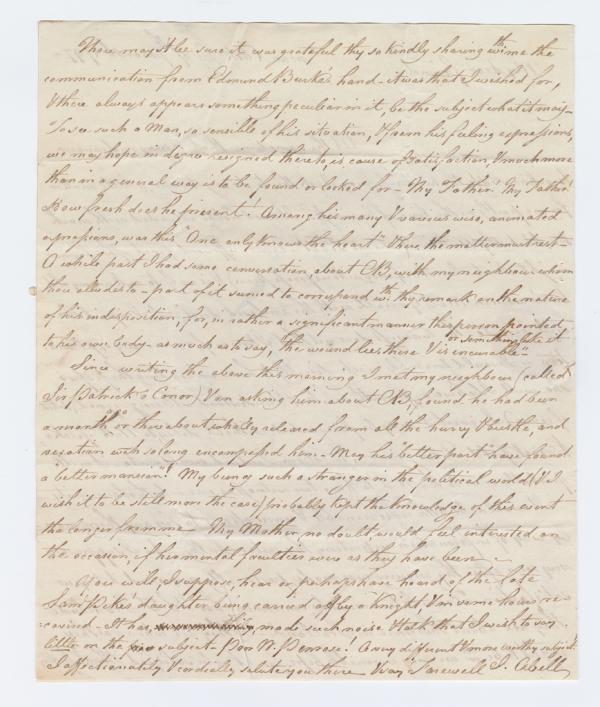 Thou mayst be sure, it was grateful thy so kindly sharing wth me the
communication from Edmund Burke's hand - it was that I wished for,
& there always appears something peculiar in it, be the subject what it may -
To see such a Man, so sensible of his situation, & from his feeling expressions,
we may hope in degree resigned thereto, is cause of satisfaction, & much more
than in a general way is to be found or looked for - My Father! My Father!
How fresh does he present! Among his many & various wise, animated
expressions, was this "One only knows the heart" & here the matter must rest -
A while past I had some conversation about EB, with my neighbour whom
thou alludes to - part of it seemed to correspond wth. thy remark on the nature
of his indisposition, for, in rather a significant manner this person pointed
to his own body - as much as to say, "the wound lies there & is incurable" -
or something like it
Since writing the above this morning I met my neighbour (called
Sir Patrick o Conor) & on asking him about EB, found he had been
a month or there about wholly released from all the hurry & bustle, and
vexation wch so long encompassed him - May his "better part" have found
a "better mansion"! My being such a stranger in the political world (& I
wish it to be still more the case) probably kept the knowledge of this event
the longer from me - My Mother no doubt, would feel interested on
the occasion, if her mental faculties were as they have been -
You will, I suppose, hear or perhaps have heard of the late
Saml. Pike's daughter being carried off by a Knight, & in some hours re-
-covered - It has made such noise & talk that I wish to say
little on the subject - Poor W. Penrose! A very different & more worthy subject!
I affectionately & cordially salute you there & say Farewell J. Abell